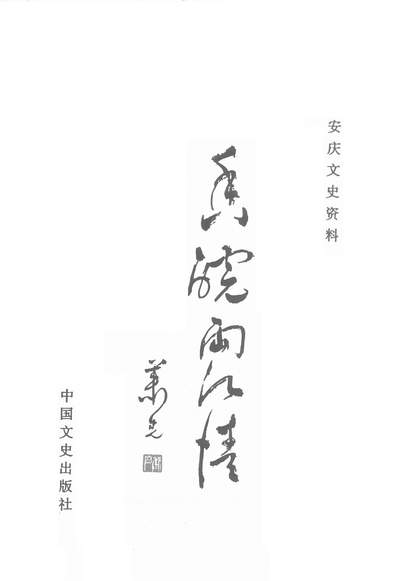 安庆文史资料
皖两江情
萧克
中国文史出版社